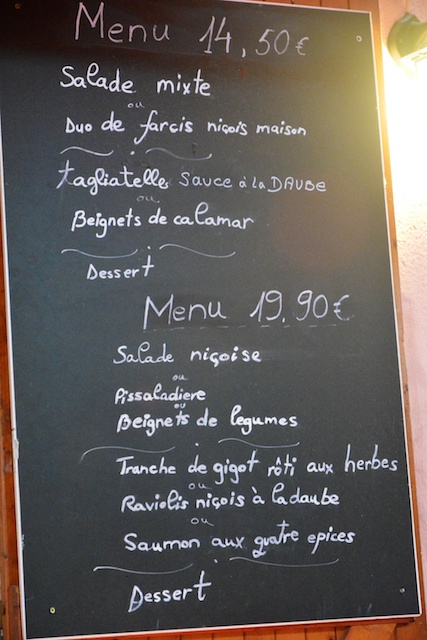 Menu 14,50€
Salade mixte
ou
Duo de farcis niçois maison
tagliatelle Sauce à la DAUBE
ou
Beignets de calamar
Dessert
Menu 19.90€
Salade niçoise
ou
Pissaladiere
ou
Beignets de legumes
Tranche de gigot rôti aux herbes
ou
Raviolis niçois à la daube
ou
Saumon aux quatre epices
Dessert